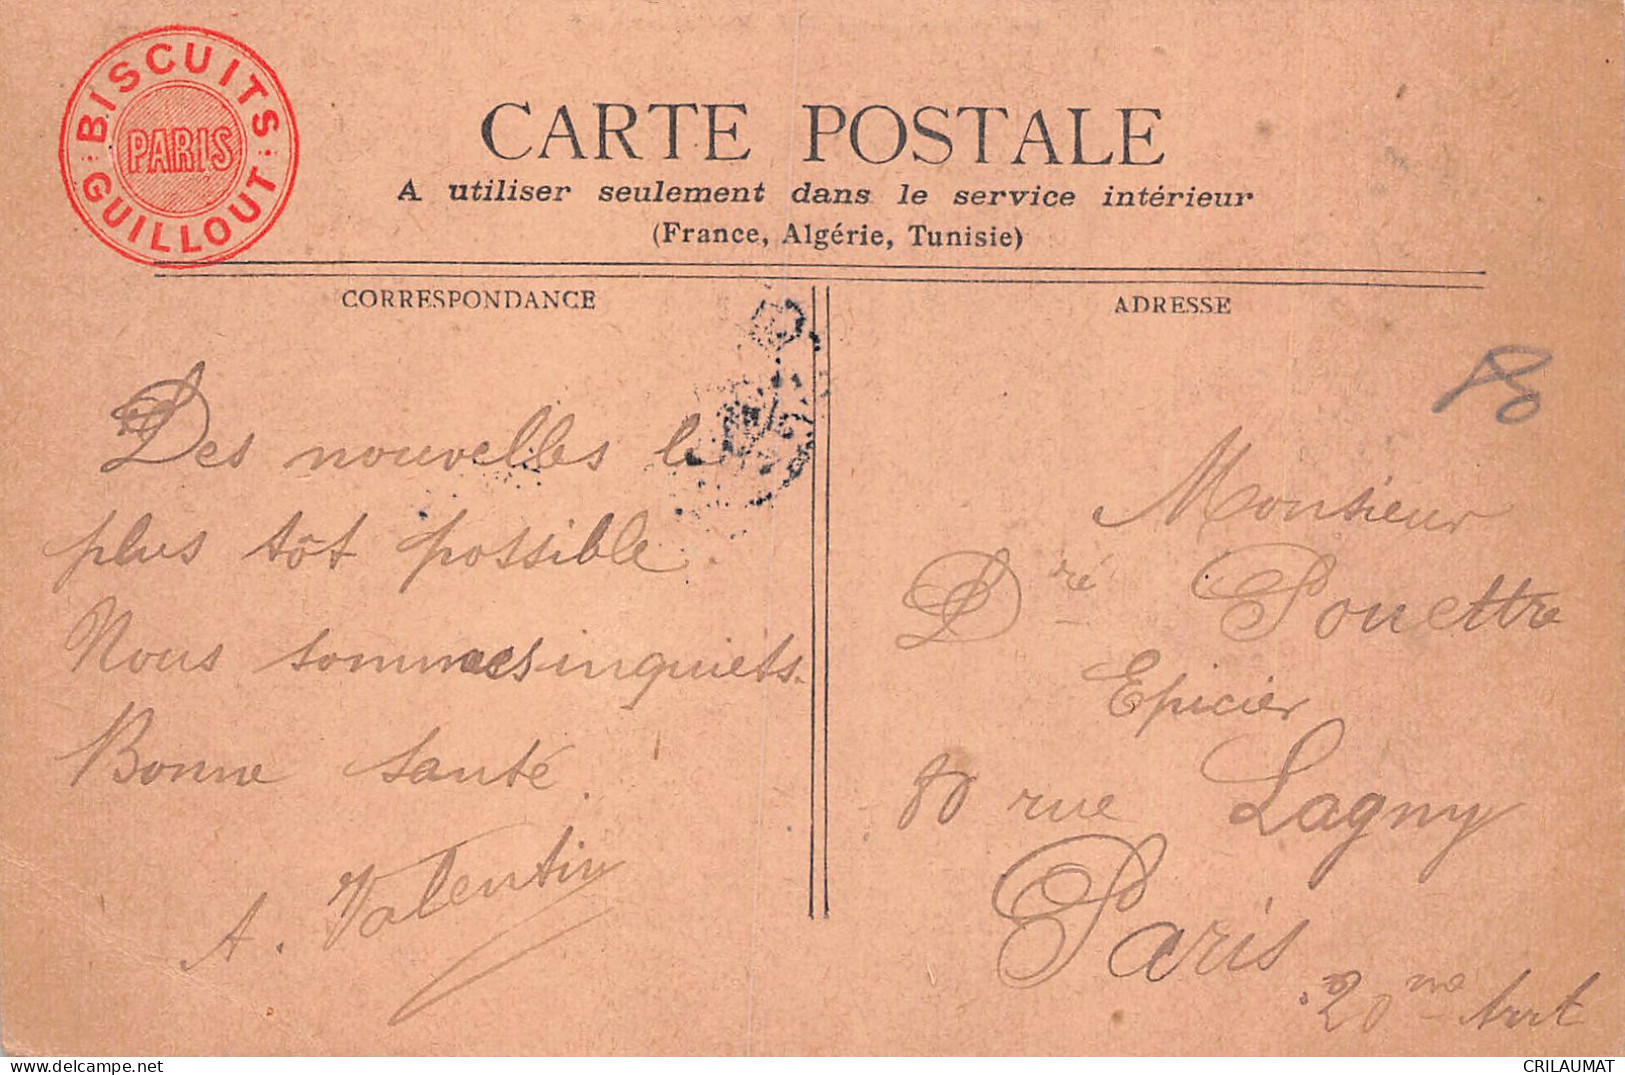 BISCUITS
PARIS
GUILLOUT
CARTE POSTALE
A utiliser seulement dans le service intérieur
(France, Algérie, Tunisie)
CORRESPONDANCE
Des nouvelles le
plus tôt possible.
Nous sommes inquiets.
Bonne santé.
A. Valentin
ADRESSE
80
Monsieur
Dré Pouettre
Epicier
80 rue Lagny
Paris
20me Arrt
https://www.delcampe.net
CRILAUMAT